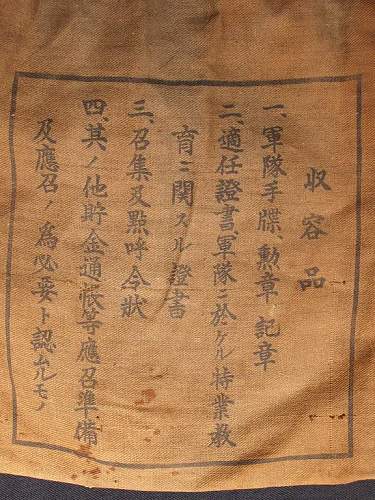 収容品
一、軍隊手牒、勲章、記章
二、適任證書、軍隊ニ於ケル特業教
育ニ関スル證書
三、召集及點呼令狀
四、其ノ他貯金通帳等應召準備
及應召ノ為必要ト認ムルモノ